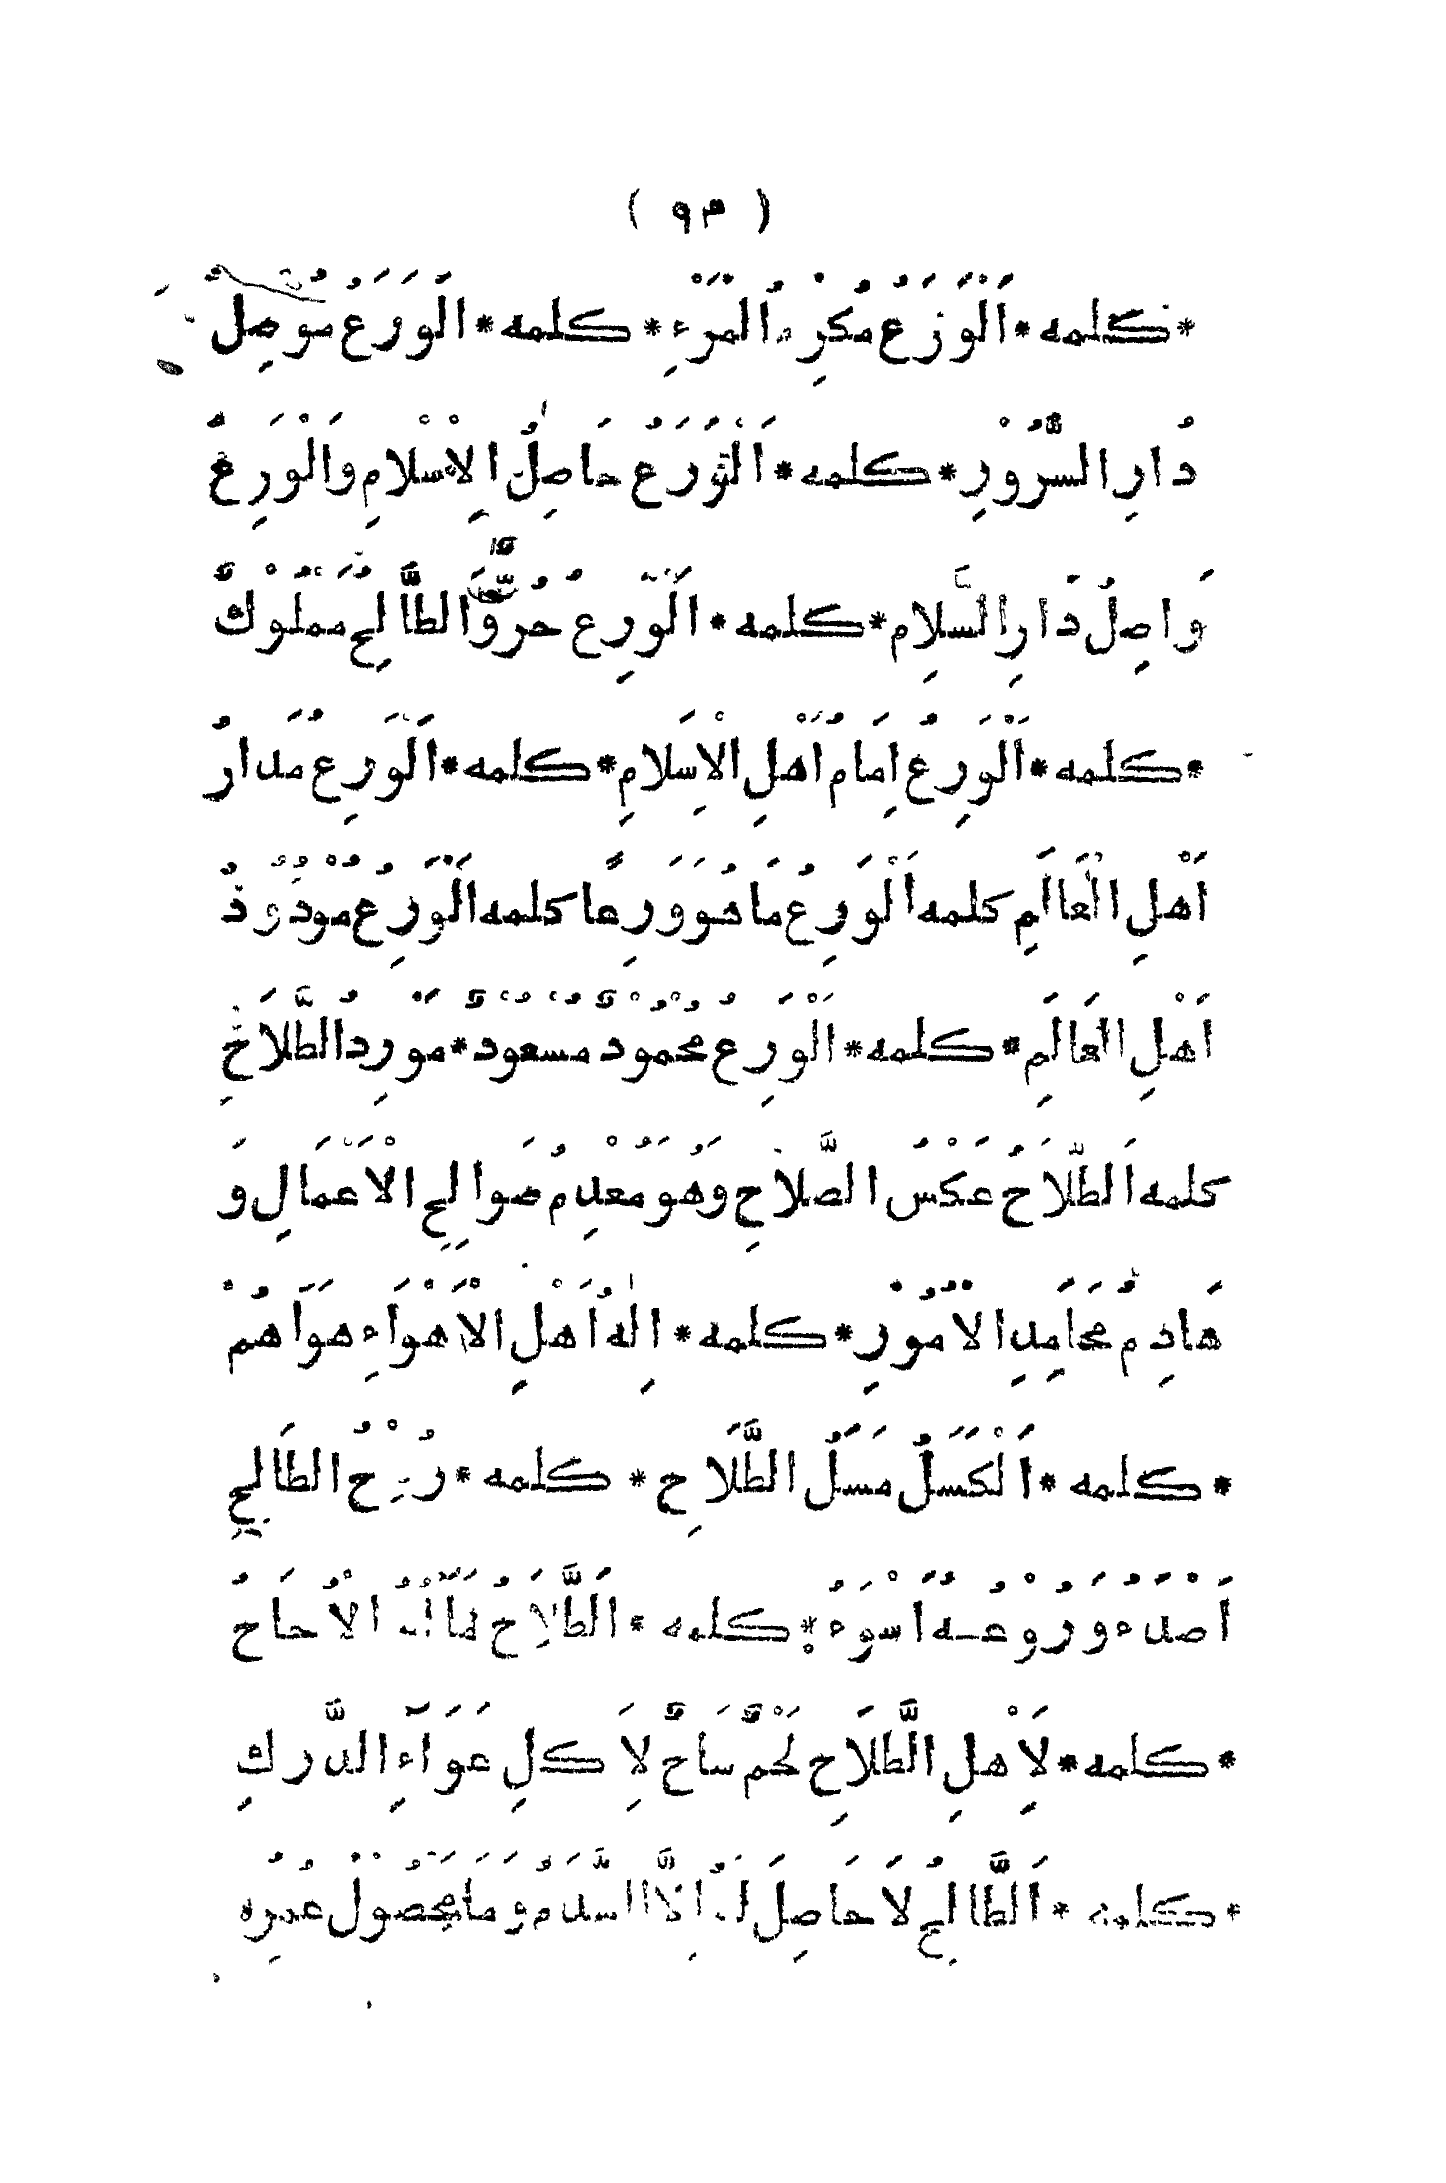 ( ٩٣ )
* كلمه * اَلْوَرَعُ مُكْرِمُ الْمَرْءِ * كلمه * الْوَرَعُ مُوصِلُ
دَارِ السُّرُوْرِ * كلمه * اَلْوَرَعُ حَاصِلُ الْاِسْلَامِ وَالْوَرِعُ
وَاصِلُ دَارِ السَّلَامِ * كلمه * اَلْوَرِعُ حُرٌّ وَالطَّالِحُ مَمْلُوْكٌ
* كلمه * اَلْوَرِعُ اِمَامُ اَهْلِ الْاِسْلَامِ * كلمه * اَلْوَرِعُ مَدَارُ
اَهْلِ الْعَالَمِ كلمه اَلْوَرِعُ مَا هُوَ وَرِعًا كلمه اَلْوَرِعُ مَوْدُوْدُ
اَهْلِ الْعَالَمِ * كلمه * اَلْوَرِعُ مَحْمُوْدٌ مَسْعُوْدٌ * مَوْرِدُ الطَّلَاحِ
كلمه اَلطَّلَاحُ عَكْسُ الصَّلَاحِ وَهُوَ مُعْدِمُ صَوَالِحِ الْاَعْمَالِ وَ
هَادِمُ مَحَامِدِ الْاُمُوْرِ * كلمه * اِلٰهُ اَهْلِ الْاَهْوَاءِ هَوَاهُمْ
* كلمه * اَلْكَسَلُ مَسَلُ الطَّلَاحِ * كلمه * رُوْحُ الطَالِحِ
اَصْدَءُ وَرُوْعُـهُ اَسْوَءُ * كلمه * اَلطَّلَاحُ مَا لَهُ الْاُحَاحُ
* كلمه * لِاَهْلِ الطَّلَاحِ لَحْمٌ سَاحٌ لِاَكْلِ عَوَّآءِ الدَّرَكِ
* كلمه * اَلطَّالِحُ لَا حَاصِلَ لَهُ اِلَّا السَّدَمُ وَمَا مَحْصُوْلُ عُمْرِهِ